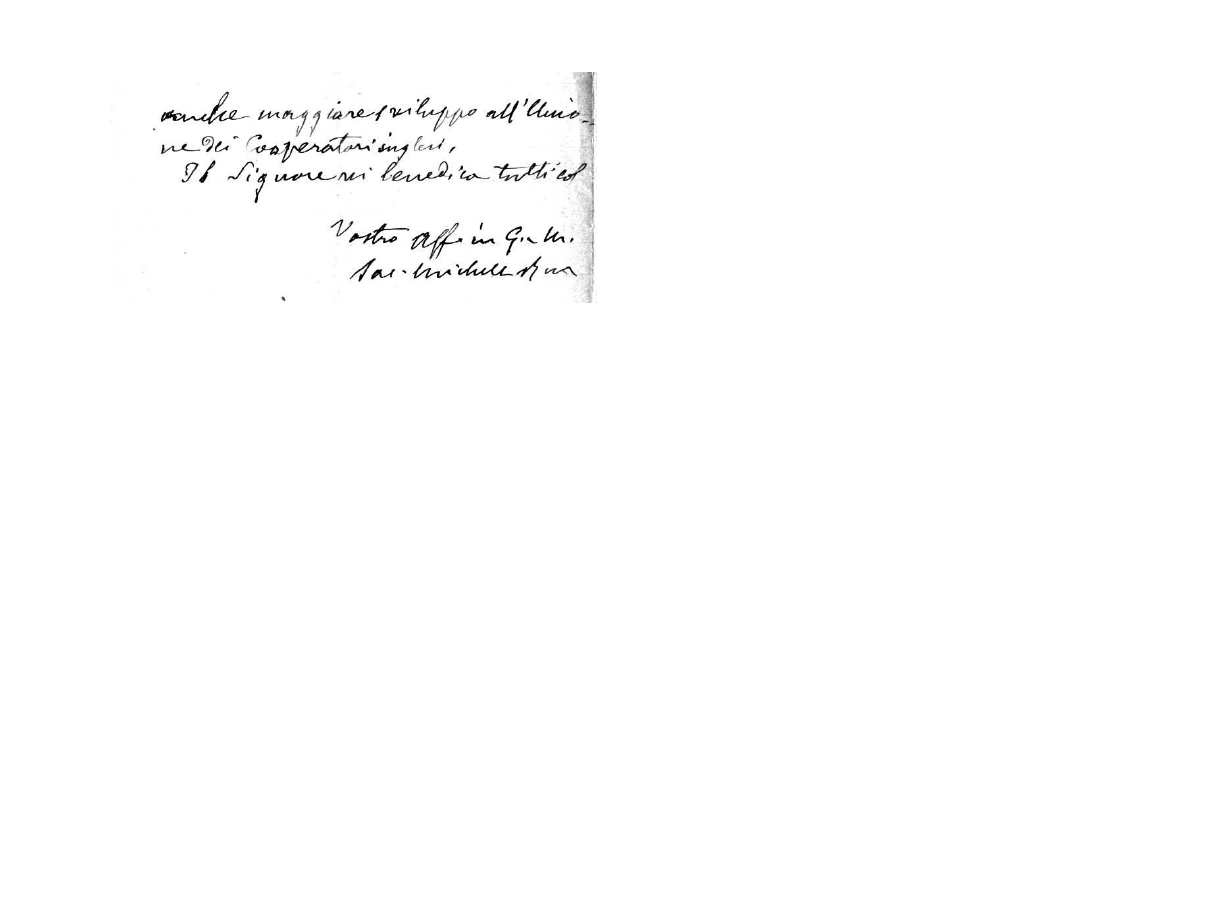 anche maggiore sviluppo all'Unio-
ne dei Cooperatori inglesi,
Il Signore vi benedica tutti col
Vostro Aff. in G. e M.
Sac. Michele Rua